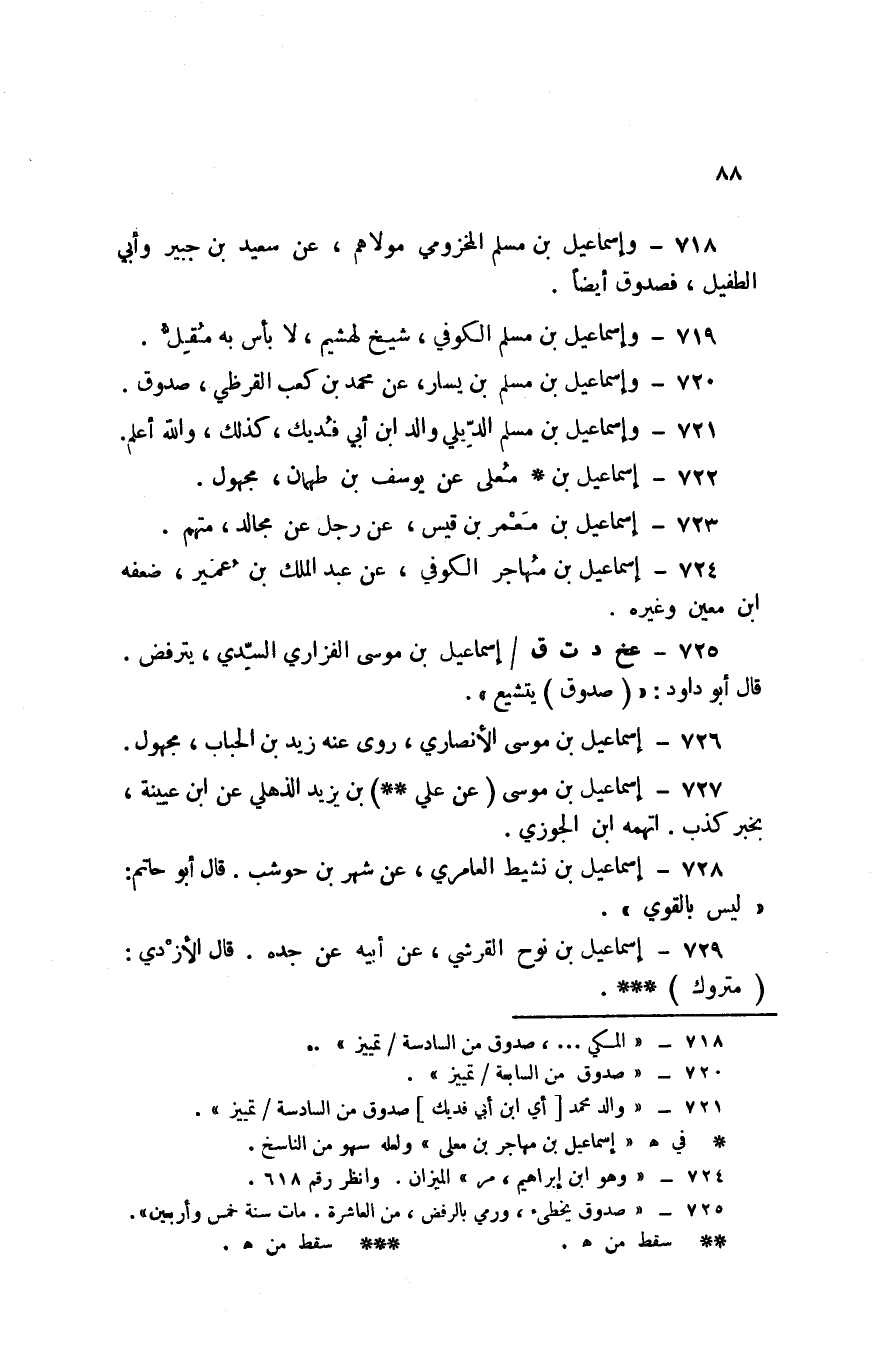 ٨٨
٧١٨ – وإسماعيل بن مسلم المخزومي مولاهم ، عن سعيد بن جبير وأبي
الطفيل ، فصدوق أيضاً .
٧١٩ – وإسماعيل بن مسلم الكوفي ، شيخ لهشيم ، لا بأس به مُقِلٌّ .
٧٢٠ – وإسماعيل بن مسلم بن يسار، عن محمد بن كعب القرظي ، صدوق .
٧٢١ – وإسماعيل بن مسلم الدِّيلي والد ابن أبي فُديك ، كذلك ، والله أعلم.
٧٢٢ – إسماعيل بن * مُعلى عن يوسف بن طهمان ، مجهول .
٧٢٣ – إسماعيل بن مَعْمر بن قيس ، عن رجل عن مجالد ، متهم .
٧٢٤ – إسماعيل بن مُهاجر الكوفي ، عن عبد الملك بن عُمَير ، ضعفه
ابن معين وغيره .
٧٢٥ – عخ د ت ق / إسماعيل بن موسى الفزاري السُّدي ، يترفض .
قال أبو داود : « ( صدوق ) يتشيع » .
٧٢٦ – إسماعيل بن موسى الأنصاري ، روى عنه زيد بن الحباب ، مجهول .
٧٢٧ – إسماعيل بن موسى ( عن علي **) بن يزيد الذهلي عن ابن عيينة ،
بخبر كذب . اتهمه ابن الجوزي .
٧٢٨ – إسماعيل بن نشيط العامري ، عن شهر بن حوشب . قال أبو حاتم:
« ليس بالقوي » .
٧٢٩ – إسماعيل بن نوح القرشي ، عن أبيه عن جده . قال الأزْدي :
( متروك ) *** .
٧١٨ – « المكي ... ، صدوق من السادسة / تمييز » ..
٧٢٠ – « صدوق من السابعة / تمييز » .
٧٢١ – « والد محمد [ أي ابن أبي فديك ] صدوق من السادسة / تمييز » .
* في ه « إسماعيل بن مهاجر بن معلى » ولعله سهو من الناسخ .
٧٢٤ – « وهو ابن إبراهيم ، مر » الميزان . وانظر رقم ٦١٨ .
٧٢٥ – « صدوق يخطىء ، ورمي بالرفض ، من العاشرة . مات سنة خمس وأربعين».
** سقط من ه . *** سقط من ه .